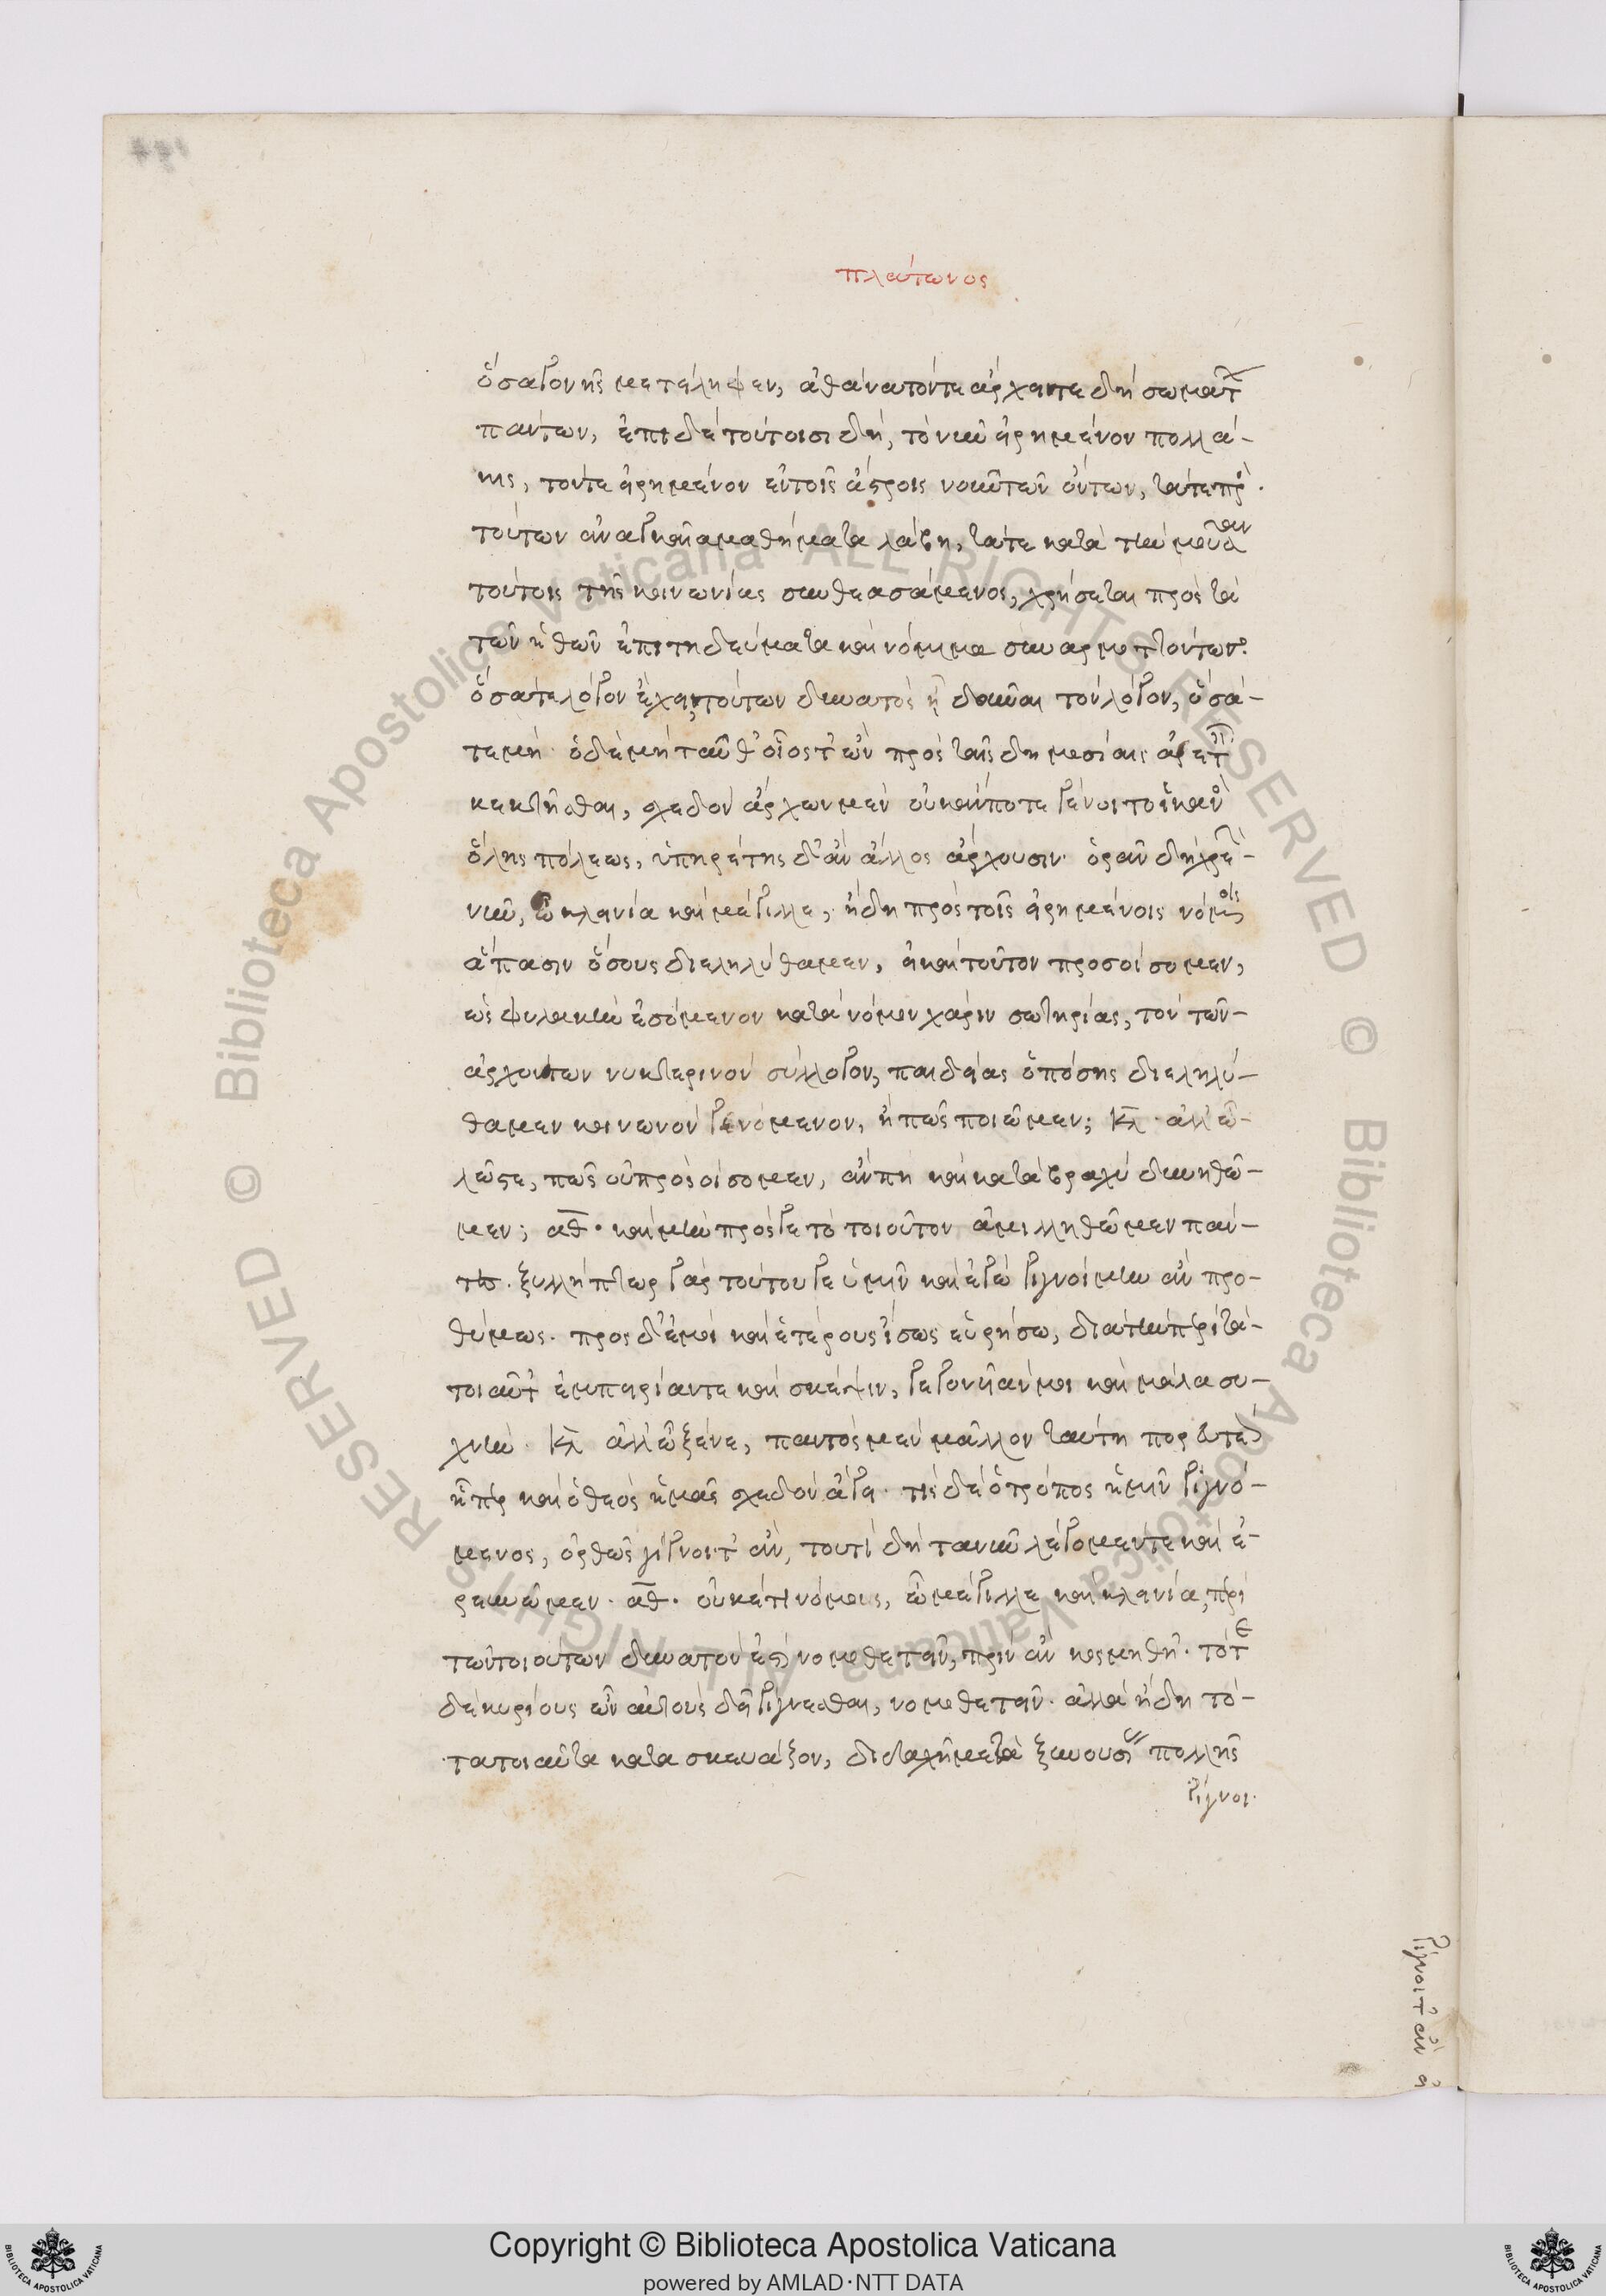 πλάτωνος
ὅσα γονῆς μετείληφεν, ἀθάνατόν τε ἄρχει τε δὴ σωμάτων
πάντων, ἐπὶ δὲ τούτοισι δὴ, τὸ νῦν εἰρημένον πολλά-
κις, τόν τε εἰρημένον ἐν τοῖς ἄστροις νοῦν τῶν ὄντων, τά τε πρὸ
τούτων ἀναγκαῖα μαθήματα λάβῃ, τά τε κατὰ τὴν μοῦσαν
τούτοις τῆς κοινωνίας συνθεασάμενος, χρήσεται πρὸς τὰ
τῶν ἠθῶν ἐπιτηδεύματα καὶ νόμιμα συναρμοττόντως.
ὅσα τε λόγον ἔχει, τούτων δυνατὸς ᾖ δοῦναι τὸν λόγον, ὅσα-
τε μή· ὁ δὲ μὴ ταῦθ' οἷός τ' ὢν πρὸς ταῖς δημοσίαις ἀρεταῖς
κεκτῆσθαι, σχεδὸν ἄρχων μὲν οὐκ ἄν ποτε γένοιτο ἱκανὸς
ὅλης πόλεως, ὑπηρέτης δ' ἂν ἄλλος ἄρχουσιν· ὁρᾶν δὴ χρεὼν
νῦν, ὦ κλεινία καὶ μέγιλλε, ἤδη πρὸς τοῖς εἰρημένοις νόμοις
ἅπασιν ὅσους διεληλύθαμεν, εἰ καὶ τοῦτον προσοίσομεν,
ὡς φυλακὴν ἐσόμενον κατὰ νόμον χάριν σωτηρίας, τὸν τῶν-
ἀρχόντων νυκτερινὸν σύλλογον, παιδείας ὁπόσης διεληλύ-
θαμεν κοινωνὸν γενόμενον, ἢ πῶς ποιῶμεν; κλ· ἀλλ' ὦ-
λῷστε, πῶς οὐ προσοίσομεν, ἄν πῃ καὶ κατὰ βραχὺ δυνηθῶ-
μεν; αθ· καὶ μὴν πρός γε τὸ τοιοῦτον ἁμιλληθῶμεν πάν-
τες. ξυλλήπτωρ γὰρ τούτου γε ὑμῖν καὶ ἐγὼ γιγνοίμην ἂν προ-
θύμως. πρὸς δ' ἐμοὶ καὶ ἑτέρους ἴσως εὑρήσω, διὰ τὴν περὶ τὰ-
τοιαῦτ' ἐμπειρίαν τε καὶ σκέψιν, γεγονυῖάν μοι καὶ μάλα συ-
χνήν· κλ ἀλλ' ὦ ξένε, παντὸς μὲν μᾶλλον ταύτῃ πορευτέον
ᾗπερ καὶ ὁ θεὸς ἡμᾶς σχεδὸν ἄγει· τίς δὲ ὁ τρόπος ἡμῖν γιγνό-
μενος, ὀρθῶς γίγνοιτ' ἄν, τουτὶ δὴ τανῦν λέγομέν τε καὶ ἐ-
ρευνῶμεν· αθ· οὐκέτι νόμους, ὦ μέγιλλε καὶ κλεινία, περὶ
τῶν τοιούτων δυνατόν ἐστι νομοθετεῖν, πρὶν ἂν κοσμηθῇ· τότε
δὲ κυρίους ὧν αὐτοὺς δεῖ γίγνεσθαι, νομοθετεῖν· ἀλλὰ ἤδη τὸ-
τὰ τοιαῦτα κατασκευάζον, διδαχὴ μετὰ ξυνουσίας πολλῆς
γίγνοι·
γίγνοιτ' ἂν εἰ
Copyright © Biblioteca Apostolica Vaticana
powered by AMLAD·NTT DATA